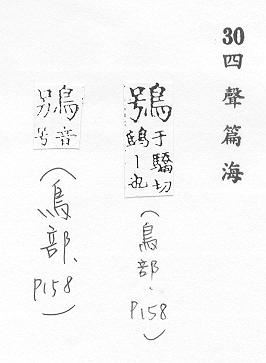 30四聲篇海
鴞
于驕切
鴟丨也
(鳥部.P158)
音
号
(鳥部.P158)